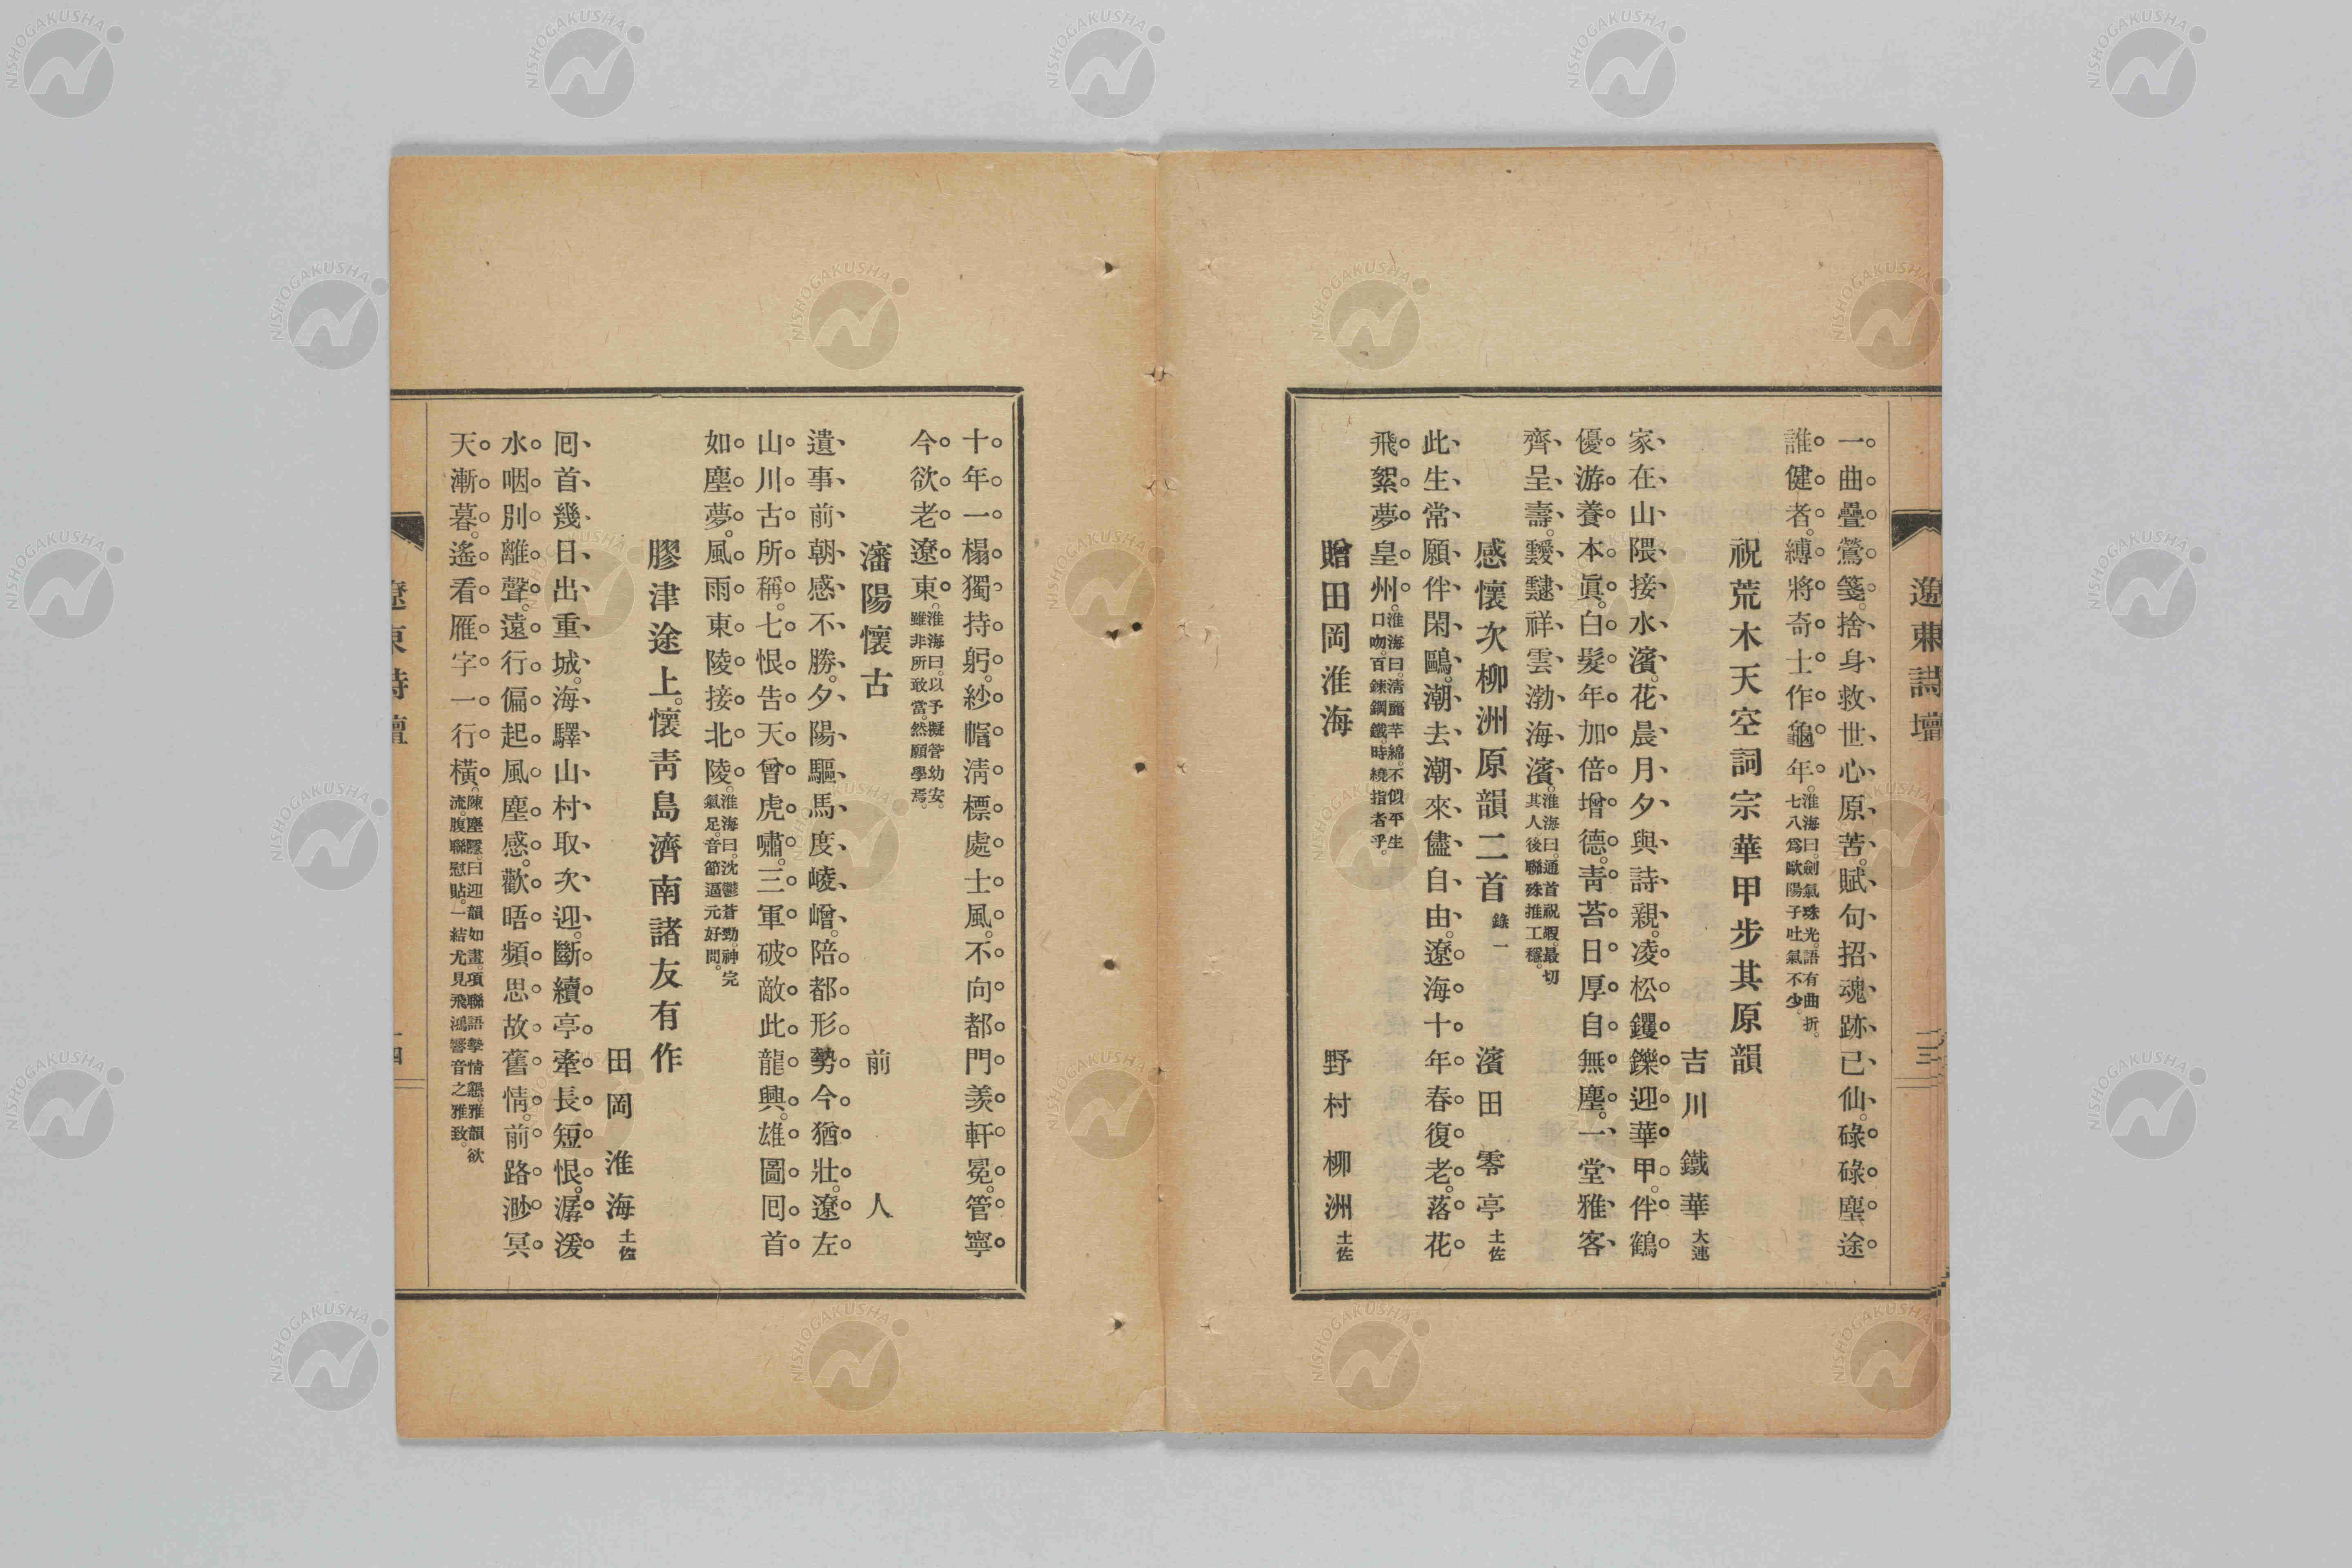 遼東詩壇
一三
一曲疊鶯箋。捨身救世心原苦。賦句招魂跡已仙。碌碌塵途
誰健者。縛將奇士作龜年。淮海曰。劍氣珠光。語有曲折。七八爲歐陽子吐氣不少。
祝荒木天空詞宗華甲步其原韻
吉川鐵華 大連
家在山隈接水濱。花晨月夕與詩親。凌松鑺鑠迎華甲。伴鶴
優游養本眞。白髮年加倍增德。靑苔日厚自無塵。一堂雅客
齊呈壽。靉靆祥雲渤海濱。淮海曰。通首祝嘏。最切其人後聯殊推工穩。
感懷次柳洲原韻二首 錄一 濱田零亭 土佐
此生常願伴閑鷗。潮去潮來儘自由。遼海十年春復老。落花
飛絮夢皇州。淮海曰。淸麗芊綿。不似平生口吻。百鍊鋼鐵。時繞指者乎。
贈田岡淮海 野村柳洲 土佐
十年一榻獨持躬。紗帽淸標處士風。不向都門羨軒冕。管寧
今欲老遼東。淮海曰。以予擬管幼安。雖非所敢當。然願學焉。
瀋陽懷古 前人
遺事前朝感不勝。夕陽驅馬度崚嶒。陪都形勢今猶壯。遼左
山川古所稱。七恨告天曾虎嘯。三軍破敵此龍興。雄圖囘首
如塵夢。風雨東陵接北陵。淮海曰。沈鬱蒼勁。神完氣足。音節逼元好問。
膠津途上。懷靑島濟南諸友有作
田岡淮海 土佐
囘首幾日出重城。海驛山村取次迎。斷續亭牽長短恨。潺湲
水咽別離聲。遠行偏起風塵感。歡晤頻思故舊情。前路渺冥
天漸暮。遙看雁字一行橫。陳塵曰迎韻如畫。項聯語摯情懇。雅韻欲流。腹聯慰貼。一結尤見飛鴻響音之雅致。
遼東詩壇
一四
NISHOGAKUSHA